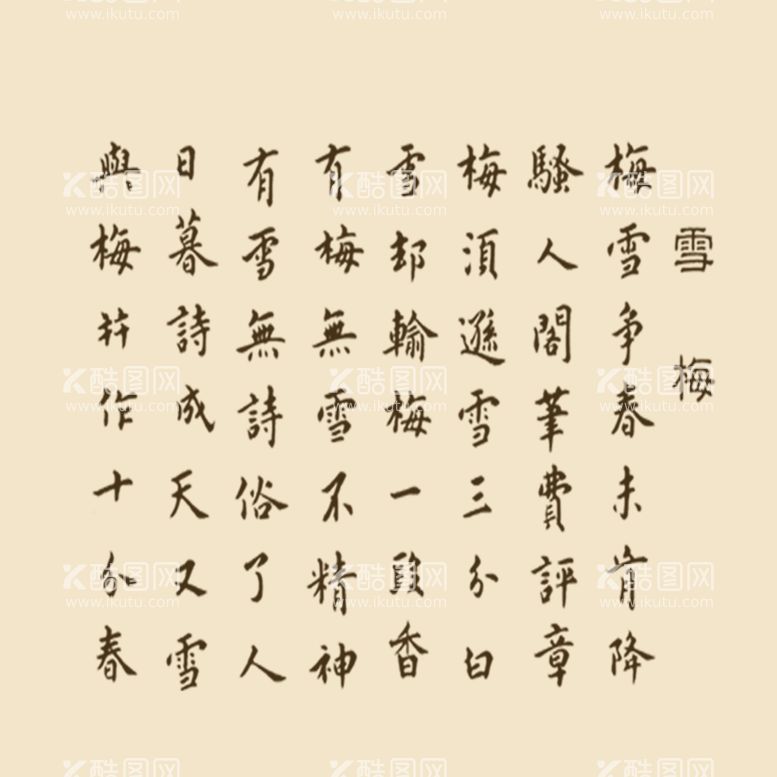 雪梅
梅雪争春未肯降
騷人閣筆費評章
梅須遜雪三分白
雪却輸梅一段香
有梅無雪不精神
有雪無詩俗了人
日暮詩成天又雪
與梅并作十分春
酷图网
www.ikutu.com